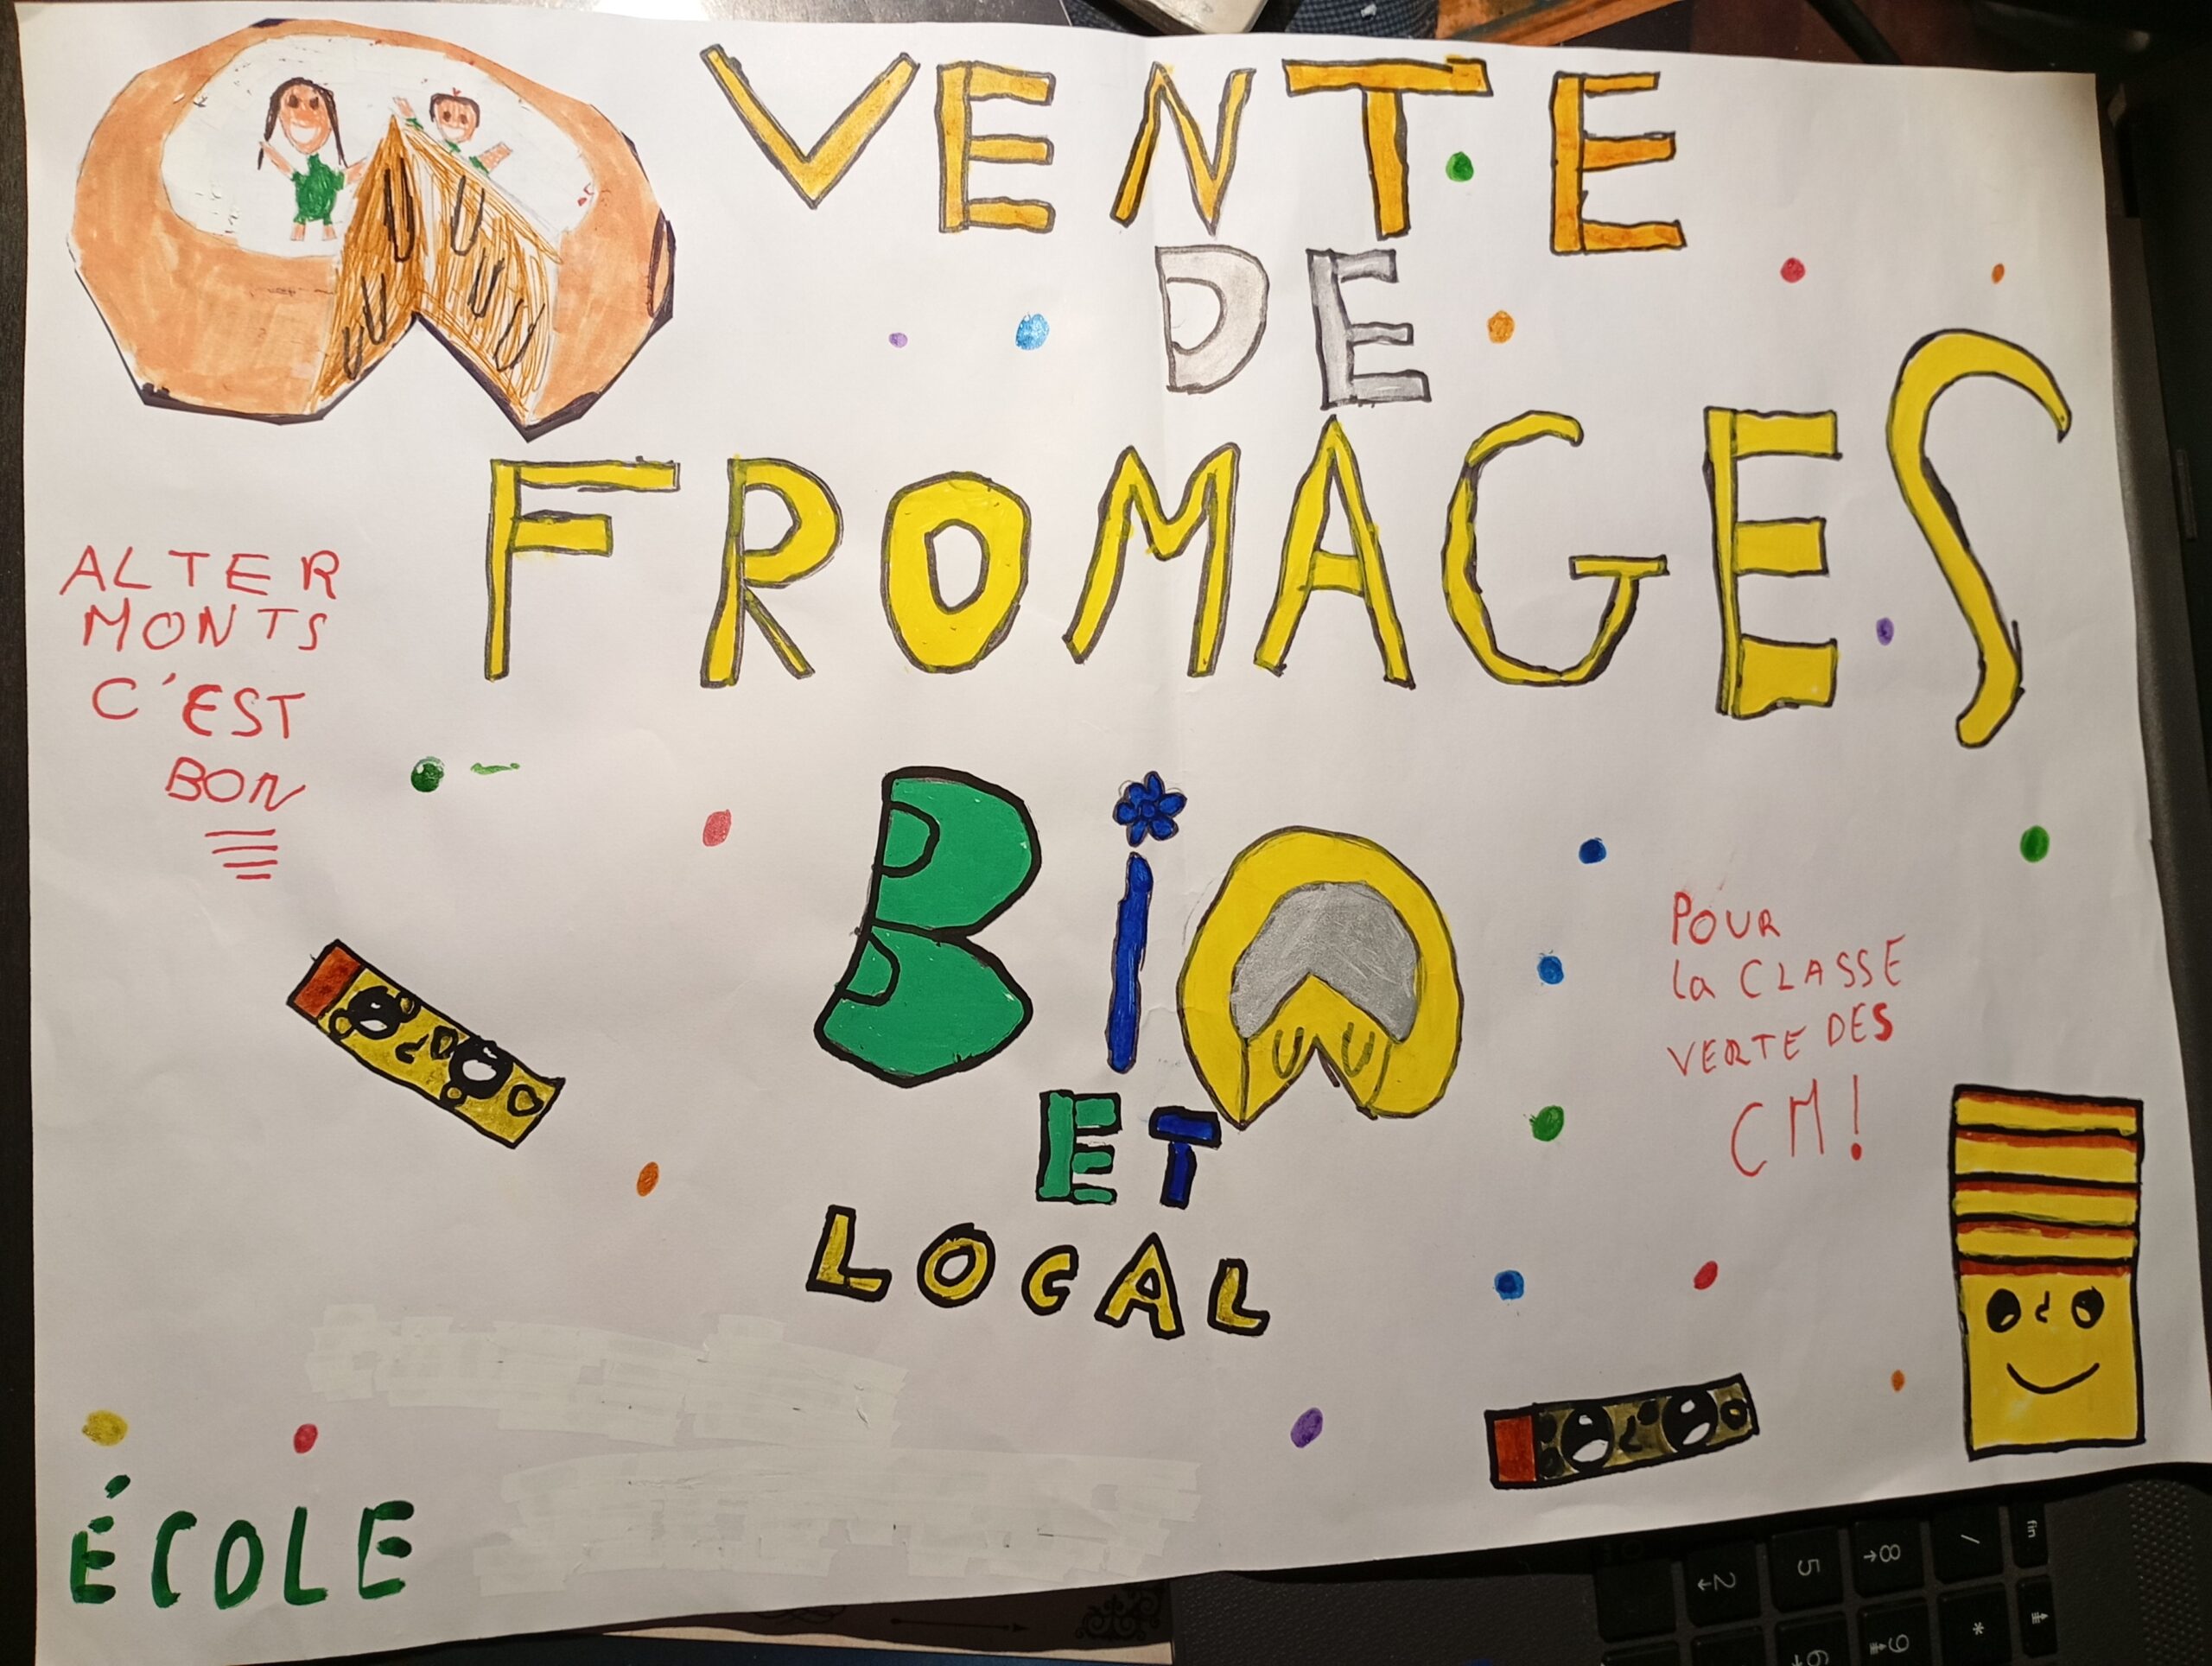 VENTE
DE
FROMAGES
ALTER
MONTS
C'EST
BON
BiO
ET
LOCAL
POUR
la CLASSE
VERTE DES
CM!
ÉCOLE
fin
/
8
5
2
*
9
6